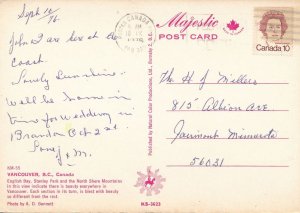 Sept 12/76
John I are here at the
coast.
Lovely Sunshine.
Will be home in
time for wedding in
Brandon Oct 2nd.
Love J & M.
CANADA
Majestic
POST CARD
Canada 10
The H J Millers
815 Albion Ave
Fairmont Minnesota
56031
KM-55
VANCOUVER, B.C., Canada
English Bay, Stanley Park and the North Shore Mountains
In this view indicate there is beauty everywhere in
Vancouver. Each section in its turn, is blest with beauty
so different from the rest.
Photo by A. D. Bennett
Published by Natural Color Productions, Ltd., Burnaby 2, B.C.